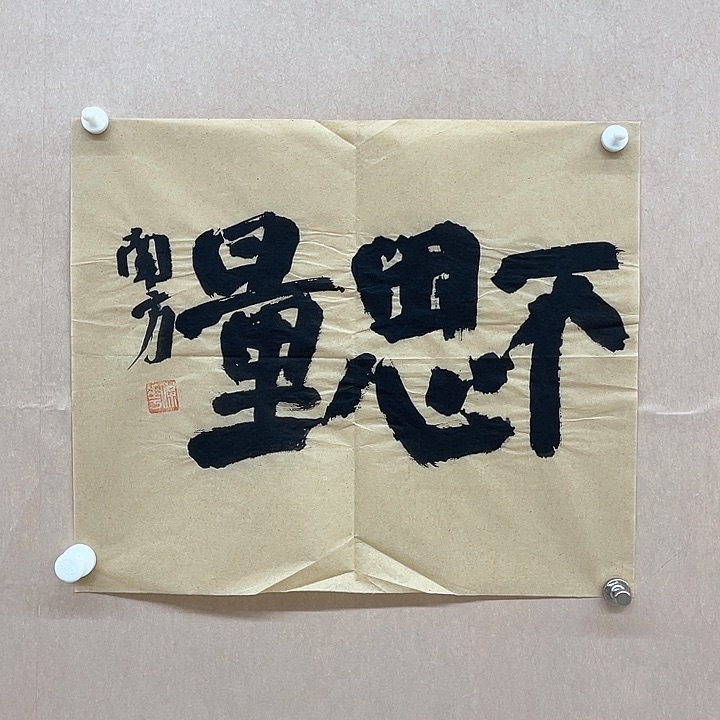 不思量
南方